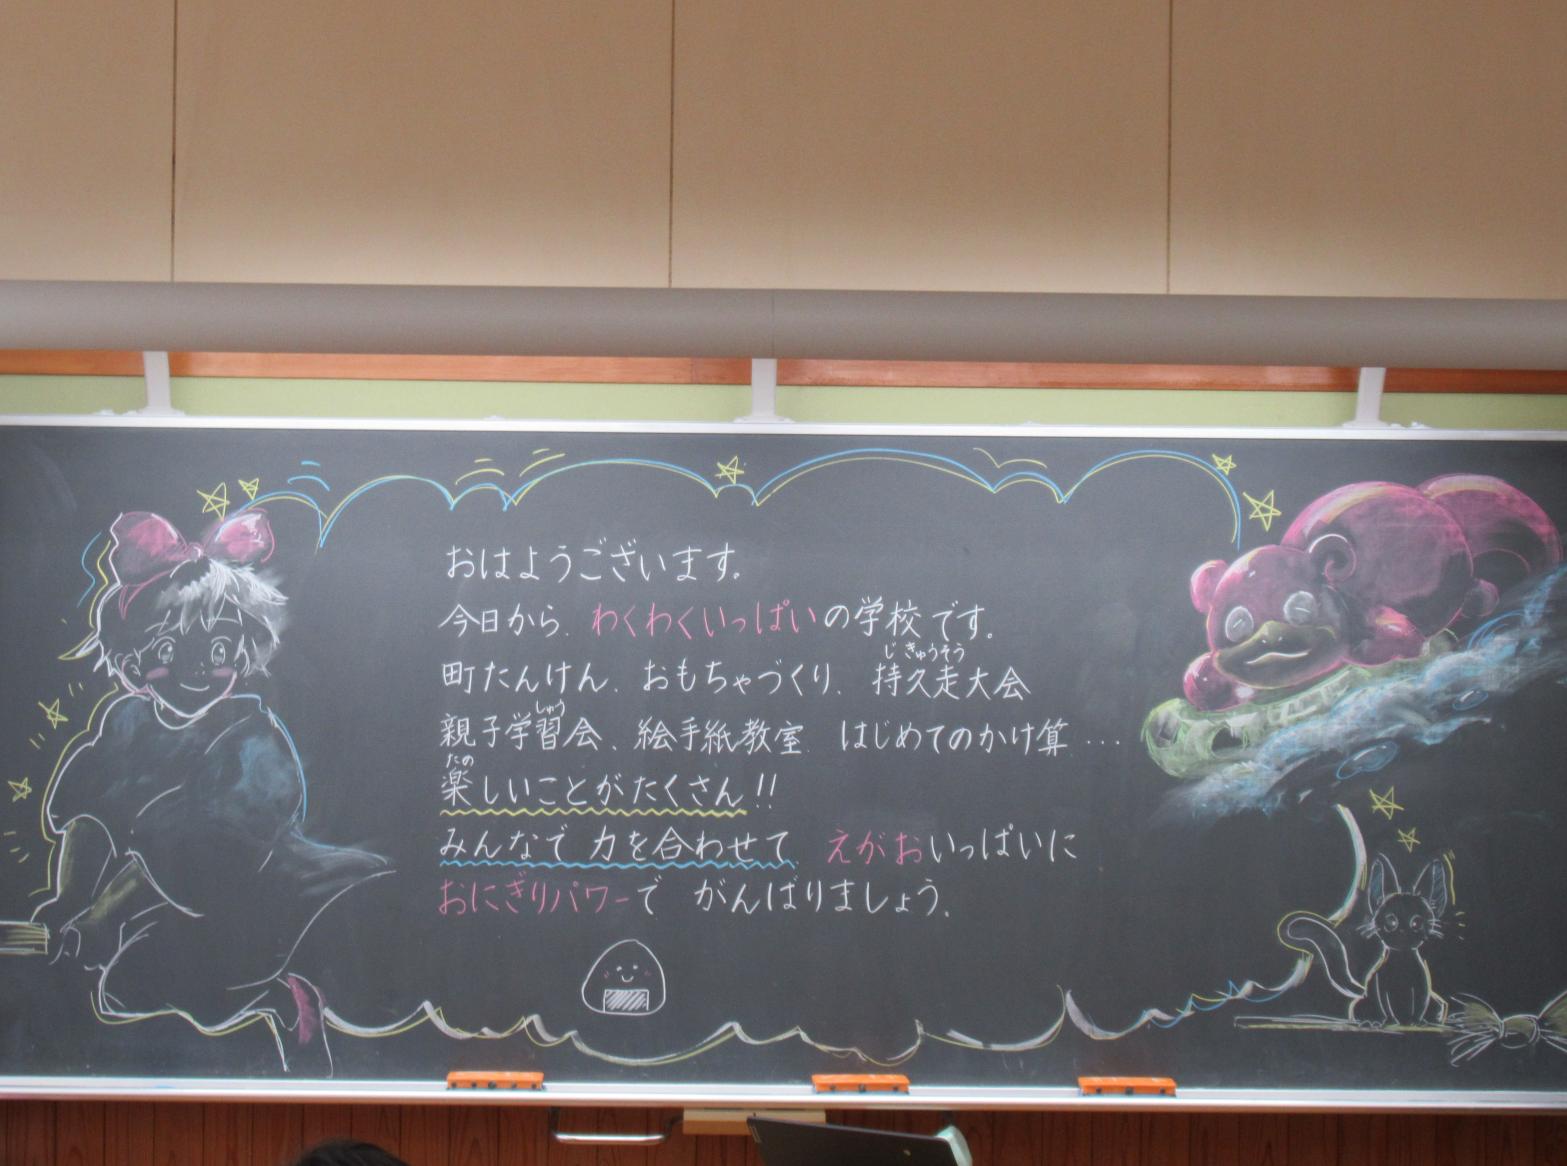 おはようございます。
今日から、わくわくいっぱいの学校です。
じきゅうそう
町たんけん、おもちゃづくり、持久走大会
しゅう
親子学習会、絵手紙教室、はじめてのかけ算…
たの
楽しいことがたくさん!!
みんなで力を合わせて、えがおいっぱいに
おにぎりパワーで がんばりましょう。